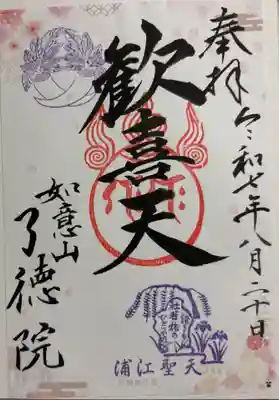 奉拝 令和七年八月二十日
歓喜天
如意山
了徳院
杜若姫の
浦江聖天